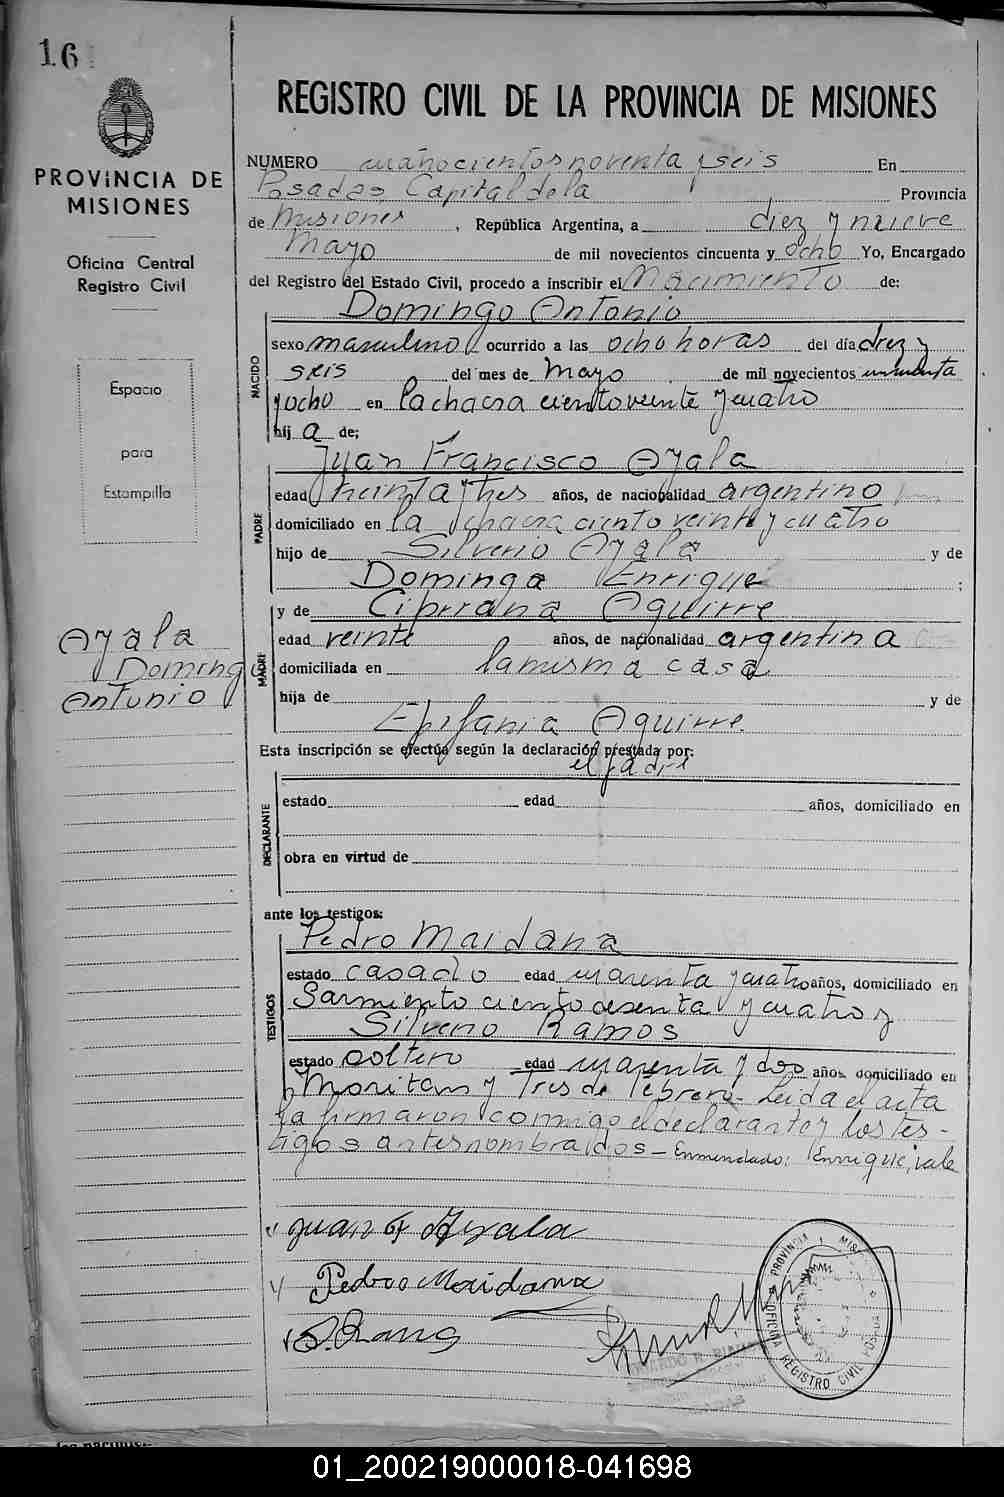 16
PROVINCIA DE
MISIONES
Oficina Central
Registro Civil
Espacio
para
Estampilla
Ayala
Domingo
Antonio
REGISTRO CIVIL DE LA PROVINCIA DE MISIONES
NUMERO cuatrocientos noventa y seis En
Posadas, Capital de la Provincia
de Misiones, República Argentina, a diez y nueve
Mayo de mil novecientos cincuenta y ocho Yo, Encargado
del Registro del Estado Civil, procedo a inscribir el Nacimiento de:
NACIDO
Domingo Antonio
sexo masculino ocurrido a las ocho horas del día diez y
seis del mes de Mayo de mil novecientos cincuenta
y ocho en la chacra ciento veinte y cuatro
hij a de;
PADRE
Juan Francisco Ayala
edad treinta y tres años, de nacionalidad argentino
domiciliado en la chacra ciento veinte y cuatro
hijo de Silverio Ayala y de
Dominga Enrique ;
MADRE
y de Cipriana Aguirre
edad veinte años, de nacionalidad argentina
domiciliada en la misma casa
hija de y de
Epifania Aguirre.
Esta inscripción se efectúa según la declaración prestada por:
el padre
DECLARANTE
estado edad años, domiciliado en
obra en virtud de
ante los testigos:
TESTIGOS
Pedro Maidana
estado casado edad cuarenta y cuatro años, domiciliado en
Sarmiento ciento sesenta y cuatro y
Silverio Ramos
estado soltero edad cuarenta y dos años, domiciliado en
y Tres de Febrero. Leida el acta
la firmaron conmigo el declarante y los tes-
tigos antes nombrados - Enmendado: Enrique, vale
Juan F Ayala
Pedro Maidana
S. Ramos
PROVINCIA MISIONES
OFICINA REGISTRO CIVIL POSADAS
01_200219000018-041698